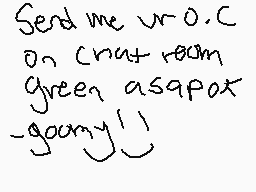 Send me ur O.C
on chat room
green asapok
-goomy!!